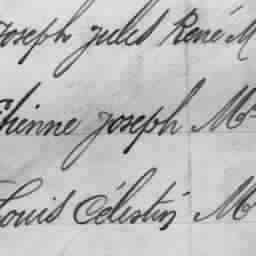 Joseph Jules René M
Etienne Joseph M
Louis Célestin M